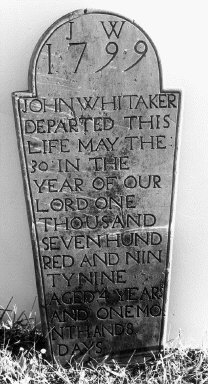 J W
1799
JOHN WHITAKER
DEPARTED THIS
LIFE MAY THE
30 IN THE
YEAR OF OUR
LORD ONE
THOUSAND
SEVEN HUND
RED AND NIN
TY NINE
AGED 4 YEAR
AND ONE MO
NTH AND 8
DAYS